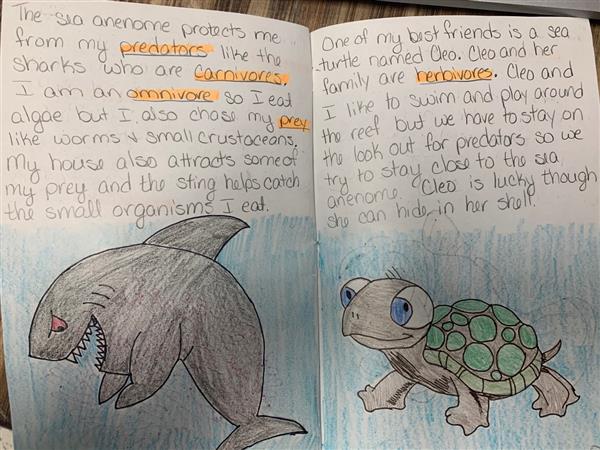 The sea anenome protects me
from my predators like the
sharks who are carnivores.
I am an omnivore so I eat
algae but I also chase my prey
like worms & small crustaceans.
My house also attracts some of
my prey and the sting helps catch
the small organisms I eat.
One of my best friends is a sea
turtle named Cleo. Cleo and her
family are herbivores. Cleo and
I like to swim and play around
the reef but we have to stay on
the look out for predators so we
try to stay close to the sea
anenome. Cleo is lucky though
she can hide in her shell.